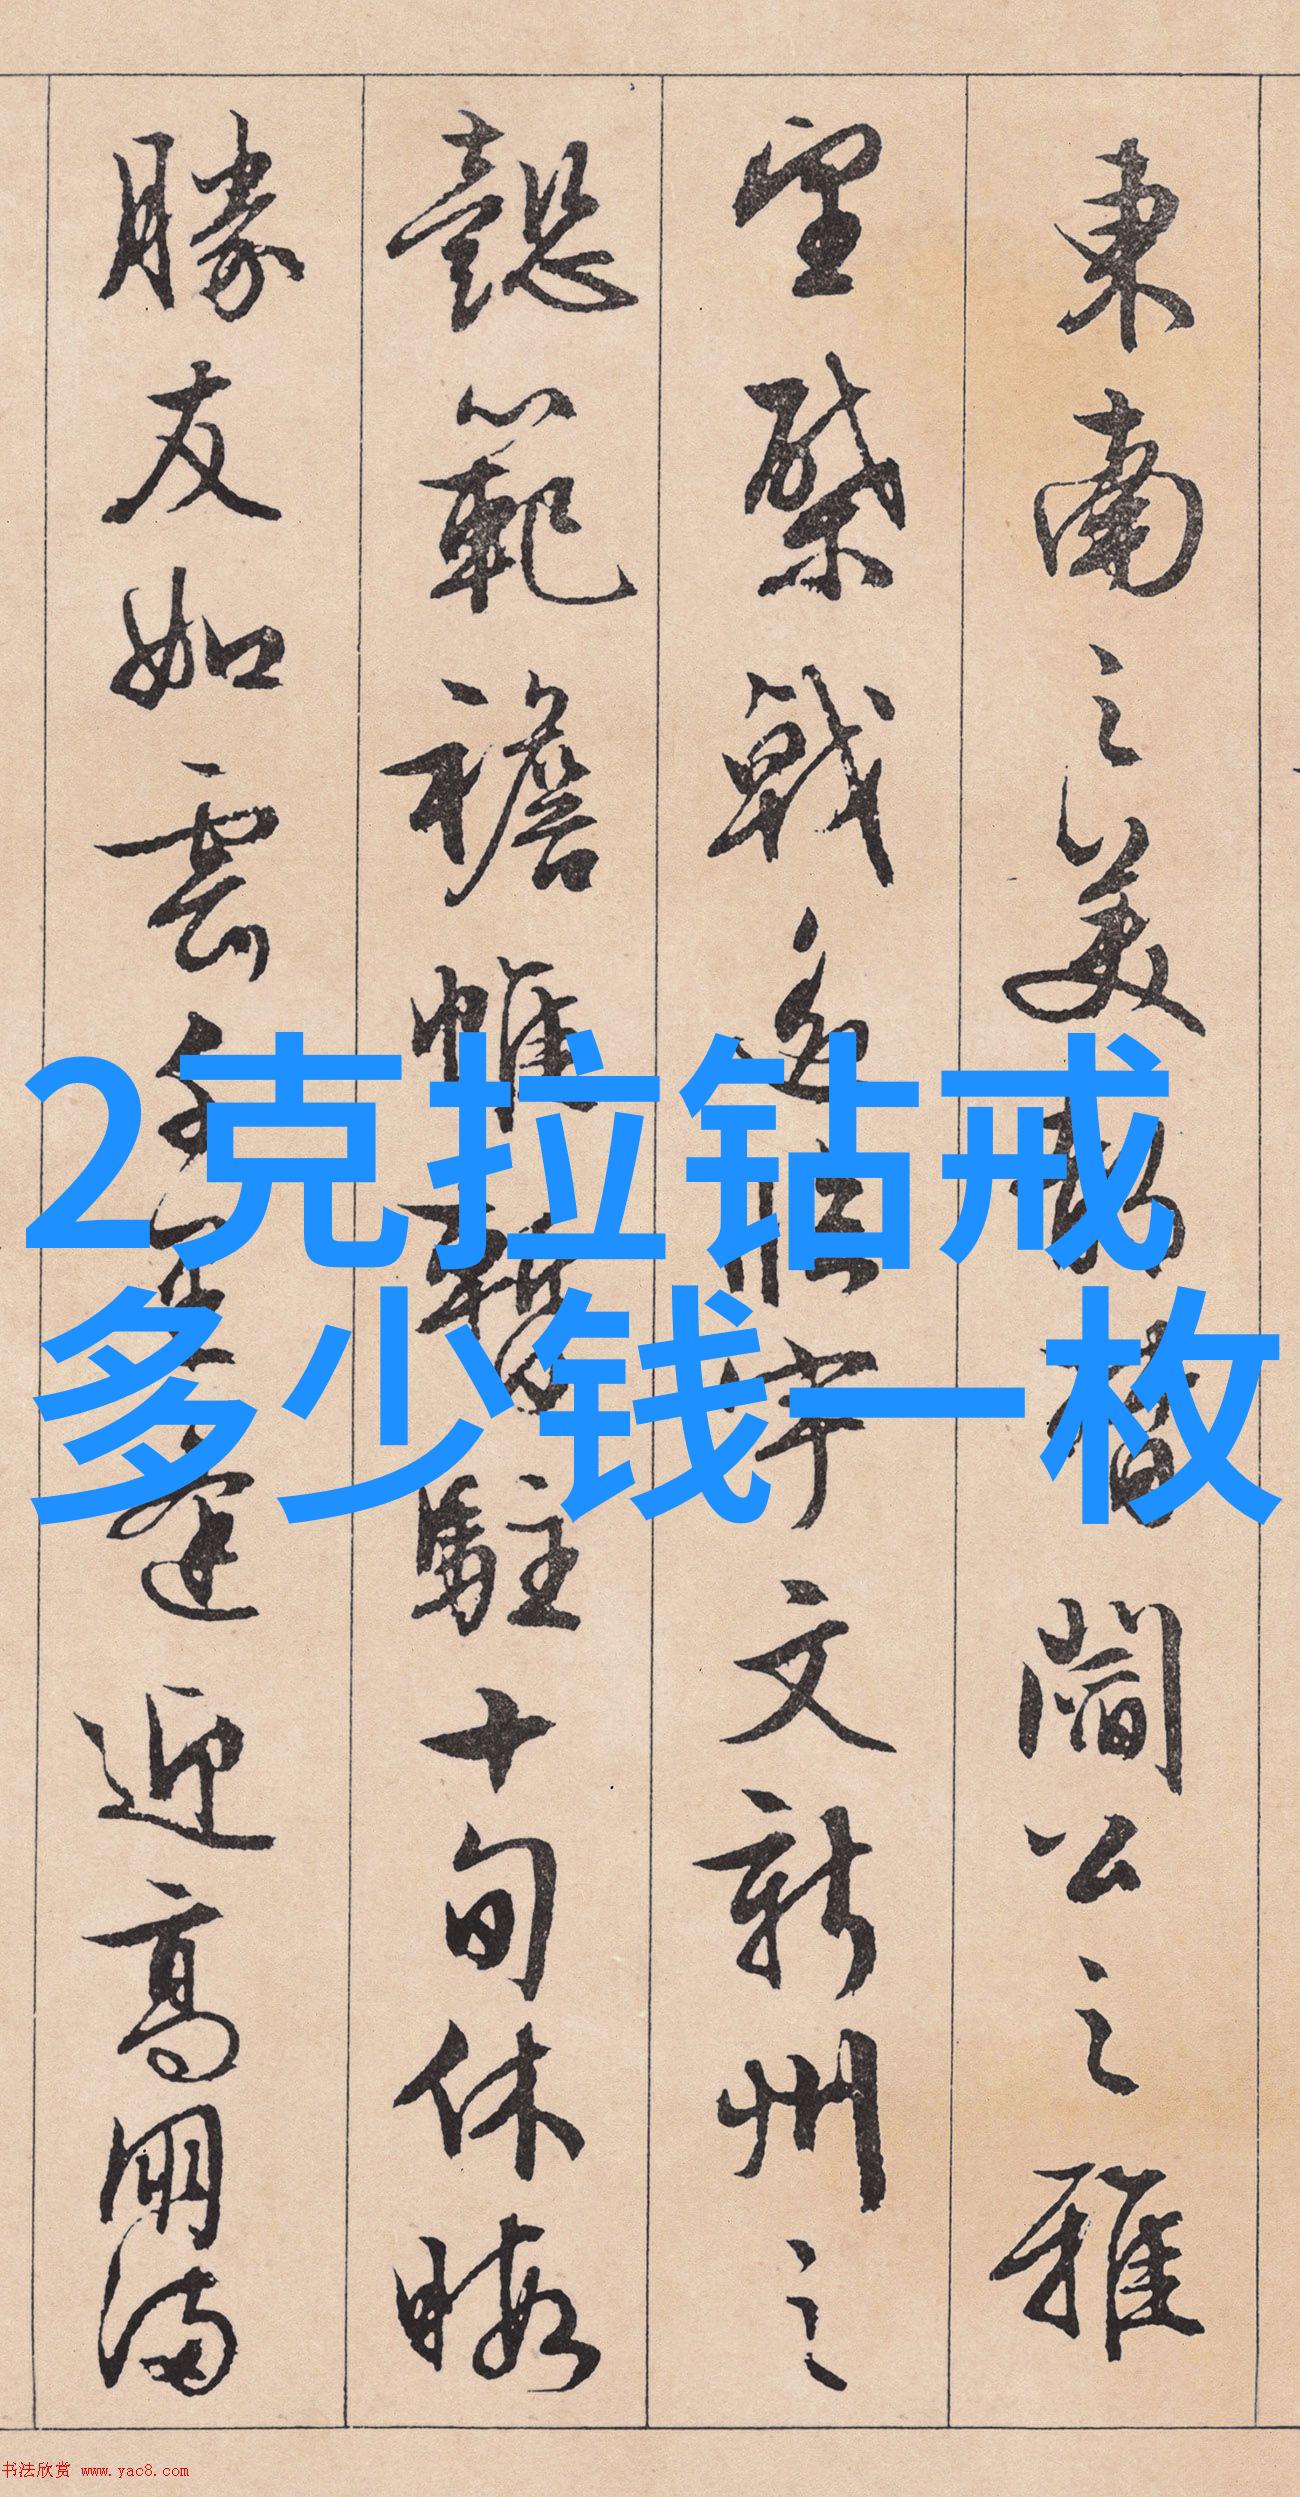 東南之美
閻公之雅
望棨戟遙臨宇文新州之
懿範襜帷暫駐十旬休暇
勝友如雲千里逢迎高朋滿
2克拉钻戒
多少钱一枚
书法欣赏 www.yac8.com